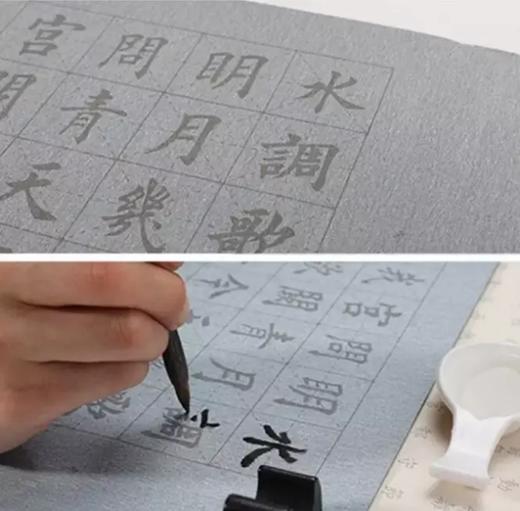 水調歌
明月幾
問青天
宮
水調
明月
問青
宮闕今
我